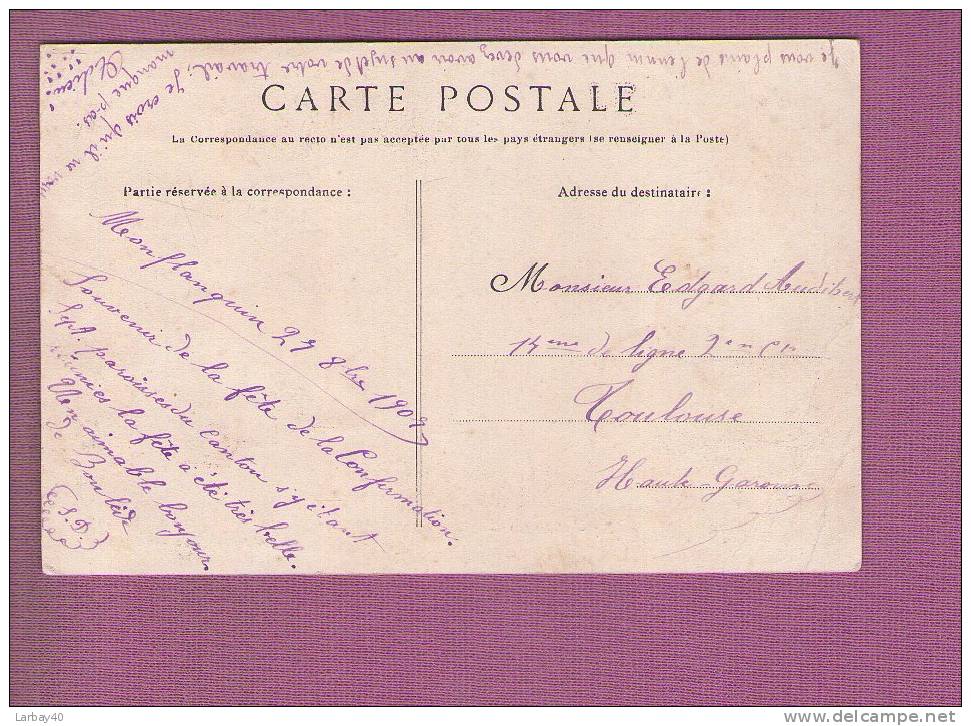 Je vous plains de l'ennui que vous devez avoir au sujet de votre travail,
Je crois qu'il ne vous
manque pas.
Adieu!
CARTE POSTALE
La Correspondance au recto n'est pas acceptée par tous les pays étrangers (se renseigner à la Poste)
Partie réservée à la correspondance :
Adresse du destinataire :
Monflanquin 27 8bre 1909
Souvenir de la fête de la Confirmation.
Sept paroisses du canton s'y étant
réunies la fête a été très belle.
Un aimable bonjour
de
(S. D.)
Monsieur Edgard Audibert
14eme de ligne 2eme Cie
Toulouse
Haute-Garonne
Larbay40
delcampe.net